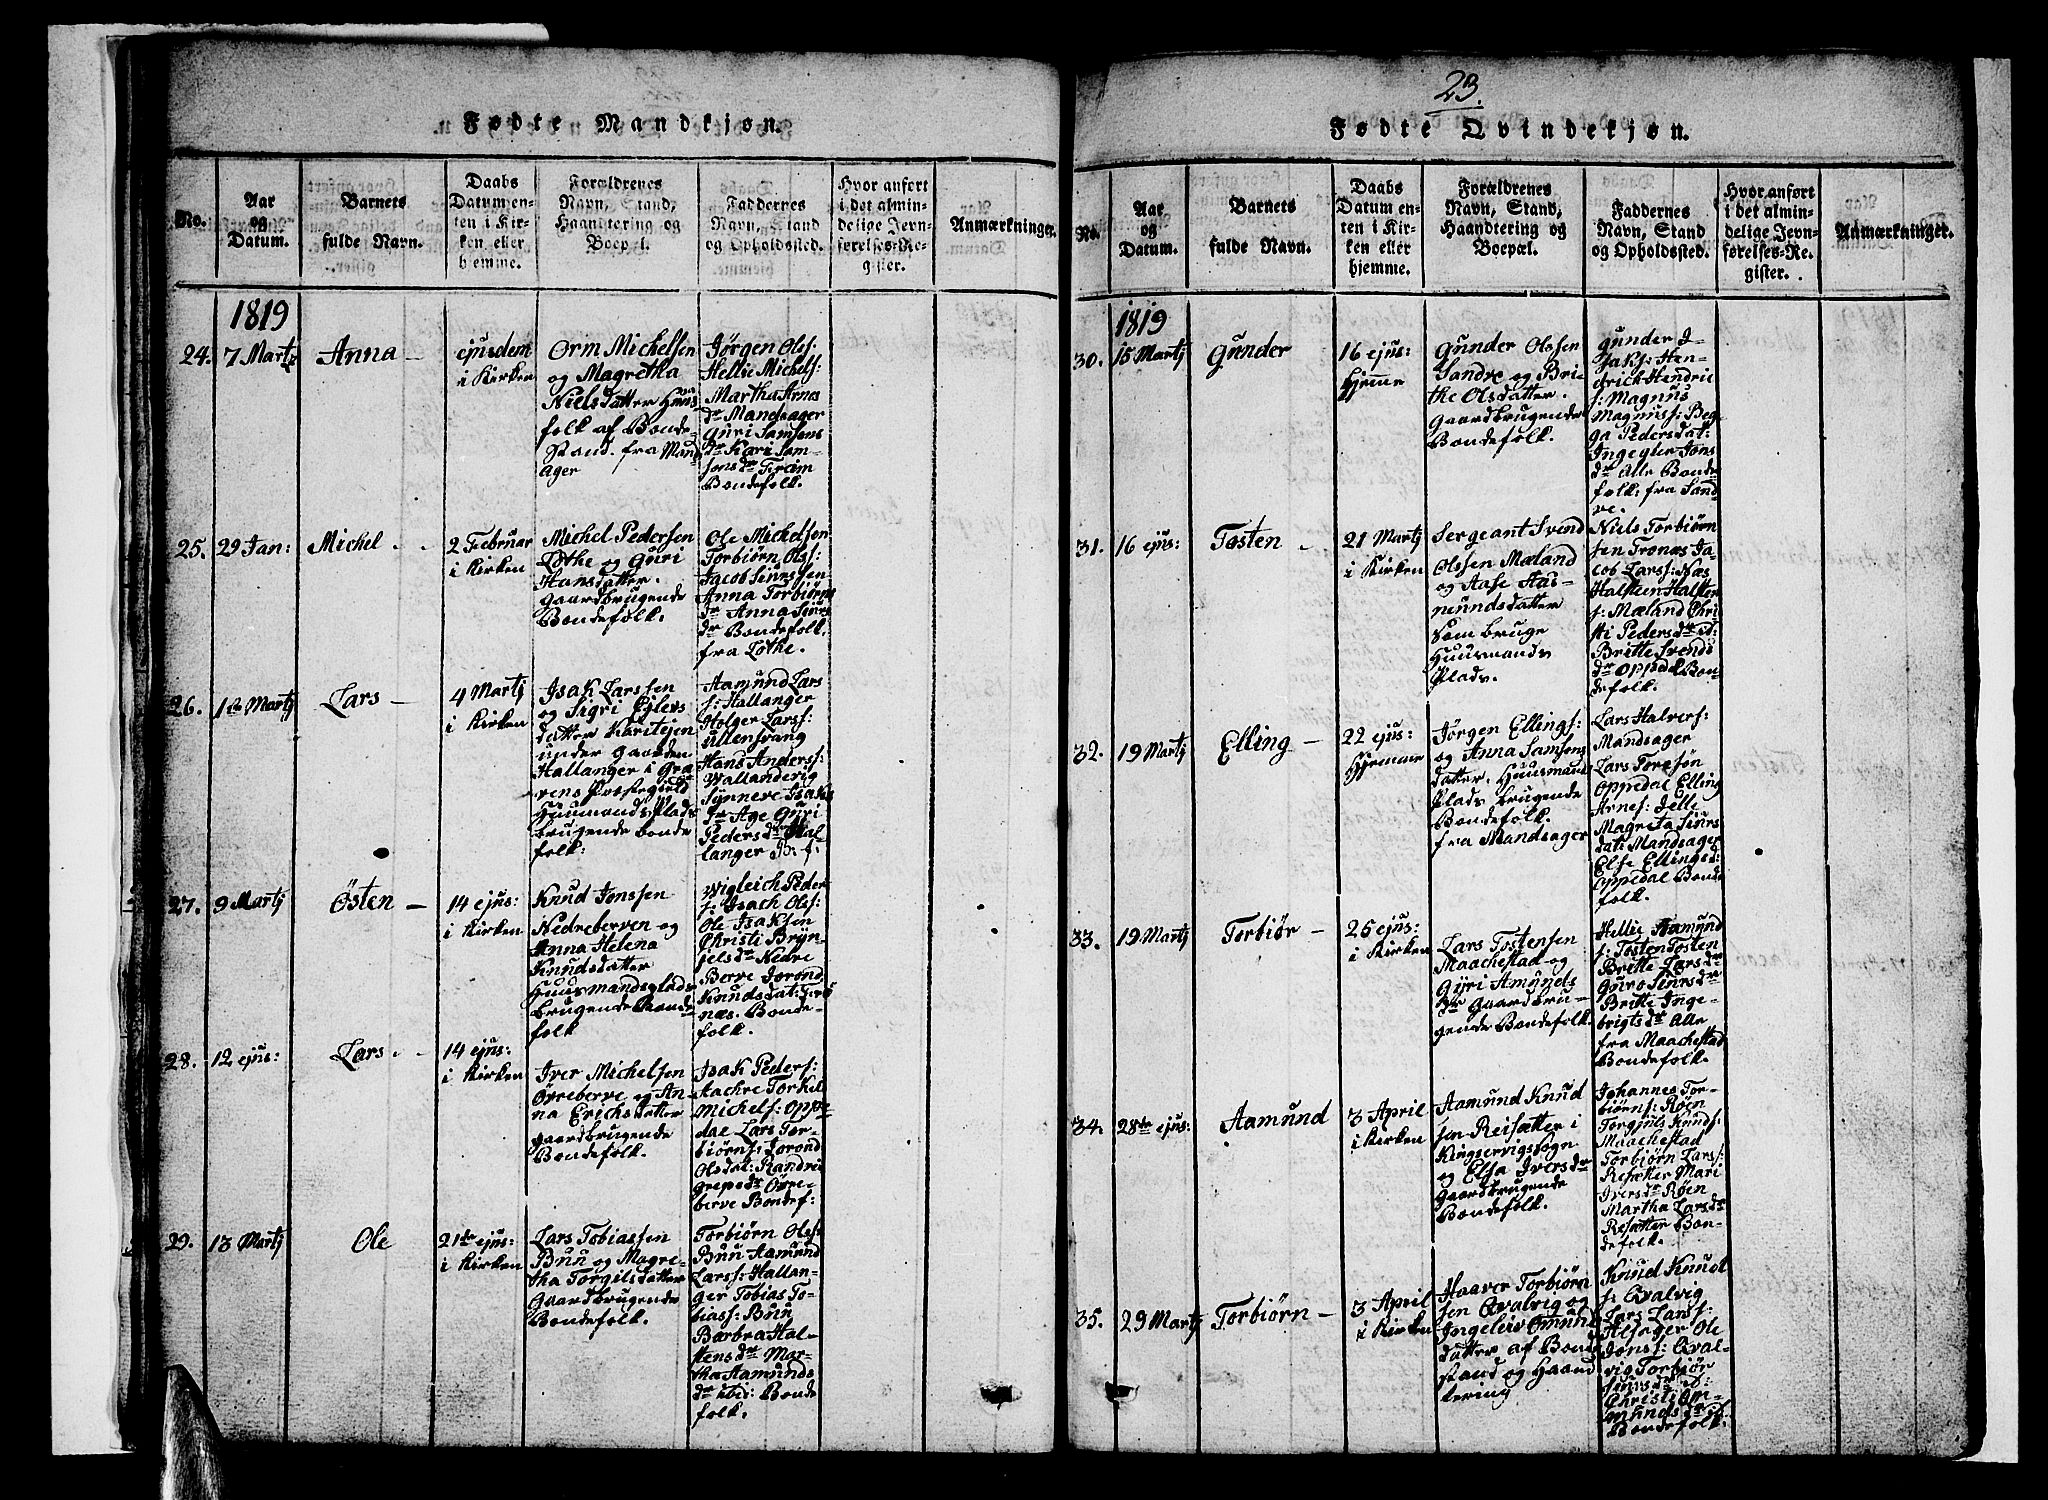 23.
Fødte Mandkjøn.
No.
Aar
og
Datum.
Barnets
fulde Navn.
Daabs
Datum en-
ten i Kir-
ken eller
hjemme.
Forældrenes
Navn, Stand,
Haandtering og
Boepæl.
Faddernes
Navn, Stand
og Opholdssted.
Hvor anført
i det almin-
delige Jevn-
førelses-Re-
gister.
Anmærkninger.
1819
24. 7 Martj
Anna -
ejusdem
i Kirken
Orm Michelsen
og Magretha
Nielsdatter Huus
folk af Bonde
Stand. fra Mand
ager
Jørgen Ols:
Hellie Michels:
Martha Arnes
dr Mandsager
Guri Samsons
dr Kari Sam-
sons dr
Bondefolk.
25. 29 Jan:
Michel - -
2 Februar
i Kirken
Michel Pedersen
Lothe og Guri
Hansdatter.
gaardbrugende
Bondefolk.
Ole Michelsen
Torbiørn Ols:
Jacob
Anna Torbiörns
dr Anna
dr Bondefolk.
fra Lothe.
26. 1te Martj
Lars -
4 Martj
i Kirken
Isak Larssen
og Sigri Ejlers
datter
under Gaarden
Hallanger i Gra
vens Præstegield
Huusmands Plads
brugende bonde
folk:
Aamund Lars
s: Hallanger
Holger Lars:
Ullensvang
Hans Anders:
Synneve Isaks
dr Age Guri
Peders dr Hal
langer B: f:
27. 9 Martj
Östen -
14 ejus:
i Kirken
Knud Jonssen
Nedreberven og
Anna Helena
Knudsdatter
Huusmandsplads
brugende Bonde
folk
Wigleich Peder
s: Isach Ols:
Ole Isaksen
Christi Bryn-
jels dr Nedre
Berve Jorond
Knudsdat:
næs. Bonde-
folk.
28. 12 ejus:
Lars - -
14 ejus:
i Kirken
Iver Michelsen
Øvreberve og An-
na Erichsdatter
gaardbrugende
Bondefolk.
Isak Peders:
Aachre Torkel
Michels: Oppe
dal Lars Tor-
biörns: Jorond
Olsdat: Randvi
dr Øvre-
berve Bondef:
29. 13 Martj
Ole
21de ejus:
i Kirken
Lars Tobiassen
Buu og Magre-
tha Torgilsdatter
Gaardbrugende
Bondefolk.
Torbiörn Ols:
Buu Aamund
Lars: Hallan-
ger Tobias To-
bias: Buu
Barbra Hal-
stens dr Mar-
tha Aamunds
dr ibid: Bonde
folk.
Fødte Qvindekjøn.
No.
Aar
og
Datum.
Barnets
fulde Navn.
Daabs
Datum en-
ten i Kir-
ken eller
hjemme.
Forældrenes
Navn, Stand,
Haandtering og
Boepæl.
Faddernes
Navn, Stand
og Opholdssted.
Hvor anført
i det almin-
delige Jevn-
førelses-Re-
gister.
Anmærkninger.
1819
30. 15 Martj
Gunder
16 ejus:
hjemme
Gunder Olssen
Sandve og Bri-
the Olsdatter.
gaardbrugende
Bondefolk.
Gunder I-
saks: Hen-
drick Hendric
s: Magnus
Magnus: Beg
ga Pedersdat:
Ingegier Jons
dr Alle Bonde
folk: fra Sand
ve.
31. 16 ejus:
Tosten -
21 Martj
i Kirken
Sergeant Svend
Olssen Mæland
og Aase Aa-
mundsdatter
som bruge
Huusmands
Plads.
Niels Torbiörn
sen Tronæs Ja-
cob Lars: Næs
Halsteen Halsten
s: Mæland Chri
sti Peders dr ib:
Britte Svends
dr Oppedal Bon-
defolk.
32. 19 Martj
Elling -
22 ejus:
Hjemme
Jørgen Ellings:
og Anna Samsons
datter. Huusmand
Plads brugende
Bondefolk.
fra Mandsager
Lars Halvers:
Mandsager
Lars Toresøn
Oppedal Elling
Arnes: Jelle
Magreta
dat: Mandsager
Else Ellingsd:
Oppedal Bonde
folk.
33. 19 Martj
Torbiør -
25 ejus:
i Kirken
Lars Tostensen
Maachestad og
Gyri Amunds
dr Gaardbru-
gende Bondefolk.
Hellie Aamund
s: Tosten Tosten
Britte Lars dr
Guro Siurs dr
Britte Inge-
brigts dr Alle
fra Maachestad
Bondefolk.
34. 28de ejus:
Aamund
3 April
i Kirken
Aamund Knud
sen Reisæter i
Kingservigs Sogn
og Elsa Ivers dr
gaardbrugende
Bondefolk.
Johannes Tor-
biörns: Røen
Torgiuls Knuds:
Maachestad
Torbiörn Lars:
Resæter Mari
Ivers dr Røen
Martha Lars dr
Resæter Bon-
defolk.
35. 29 Martj
Torbiørn -
3 April
i Kirken
Haaver Torbiörn
sen Qvalvig og
Ingeleiv Omund
datter af Bonde
stand og Haand
tering
Knud Knud
s: Qvalvig
Lars Lars:
Helsager Ole
Jons: Qval-
vig Torbiør
Siurs dr ib:
Christi Om-
munds dr ib
Bondefolk: